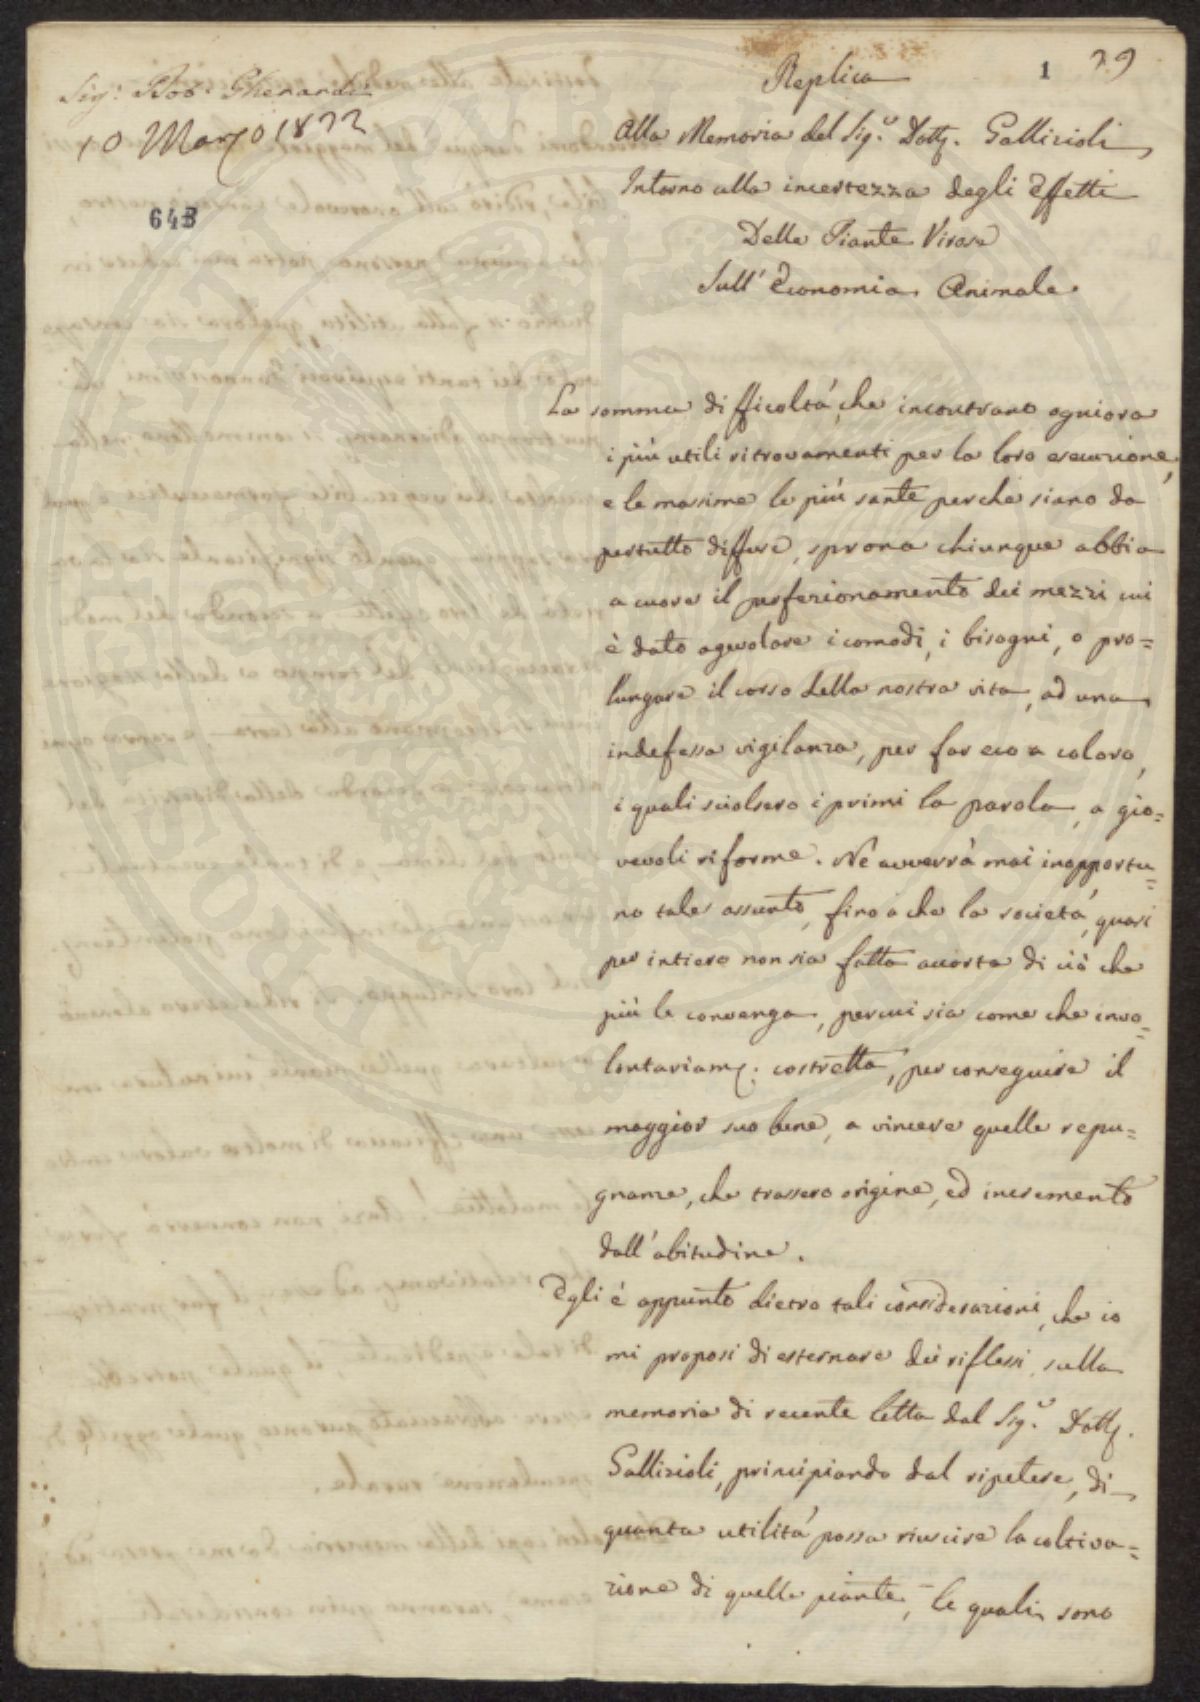 Sig.r Bob. Gherardi
10 Marzo 1822
643
1 29
Replica
Alla Memoria del Sig.r Dott. Gallizioli
Intorno alla incertezza degli Effetti
Delle Piante Virose
Sull' Economia Animale.
La somma difficoltà, che incontrano ogniora
i più utili ritrovamenti per la loro esecuzione,
e le massime le più sante perche siano da
pertutto diffuse, sprona chiunque abbia
a cuore il perfezionamento dei mezzi cui
è dato agevolare i comodi, i bisogni, o pro=
lungare il corso della nostra vita, ad una
indefessa vigilanza, per far eco a coloro,
i quali sciolsero i primi la parola, a gio=
vevoli riforme. Ne avverrà mai inopportu=
no tale assunto, fino a che la società, quasi
per intiero non sia fatta accorta di ciò che
più le convenga, per cui sia come che invo=
lontariam. costretta, per conseguire il
maggior suo bene, a vincere quelle repu=
gnanze, che trassero origine, ed incremento
dall' abitudine.
Egli è appunto dietro tali considerazioni, che io
mi proposi di esternare dei riflessi sulla
memoria di recente letta dal Sig.r Dott.
Gallizioli, principiando dal ripetere, di
quanta utilità possa riuscire la coltiva=
zione di quelle piante, le quali sono